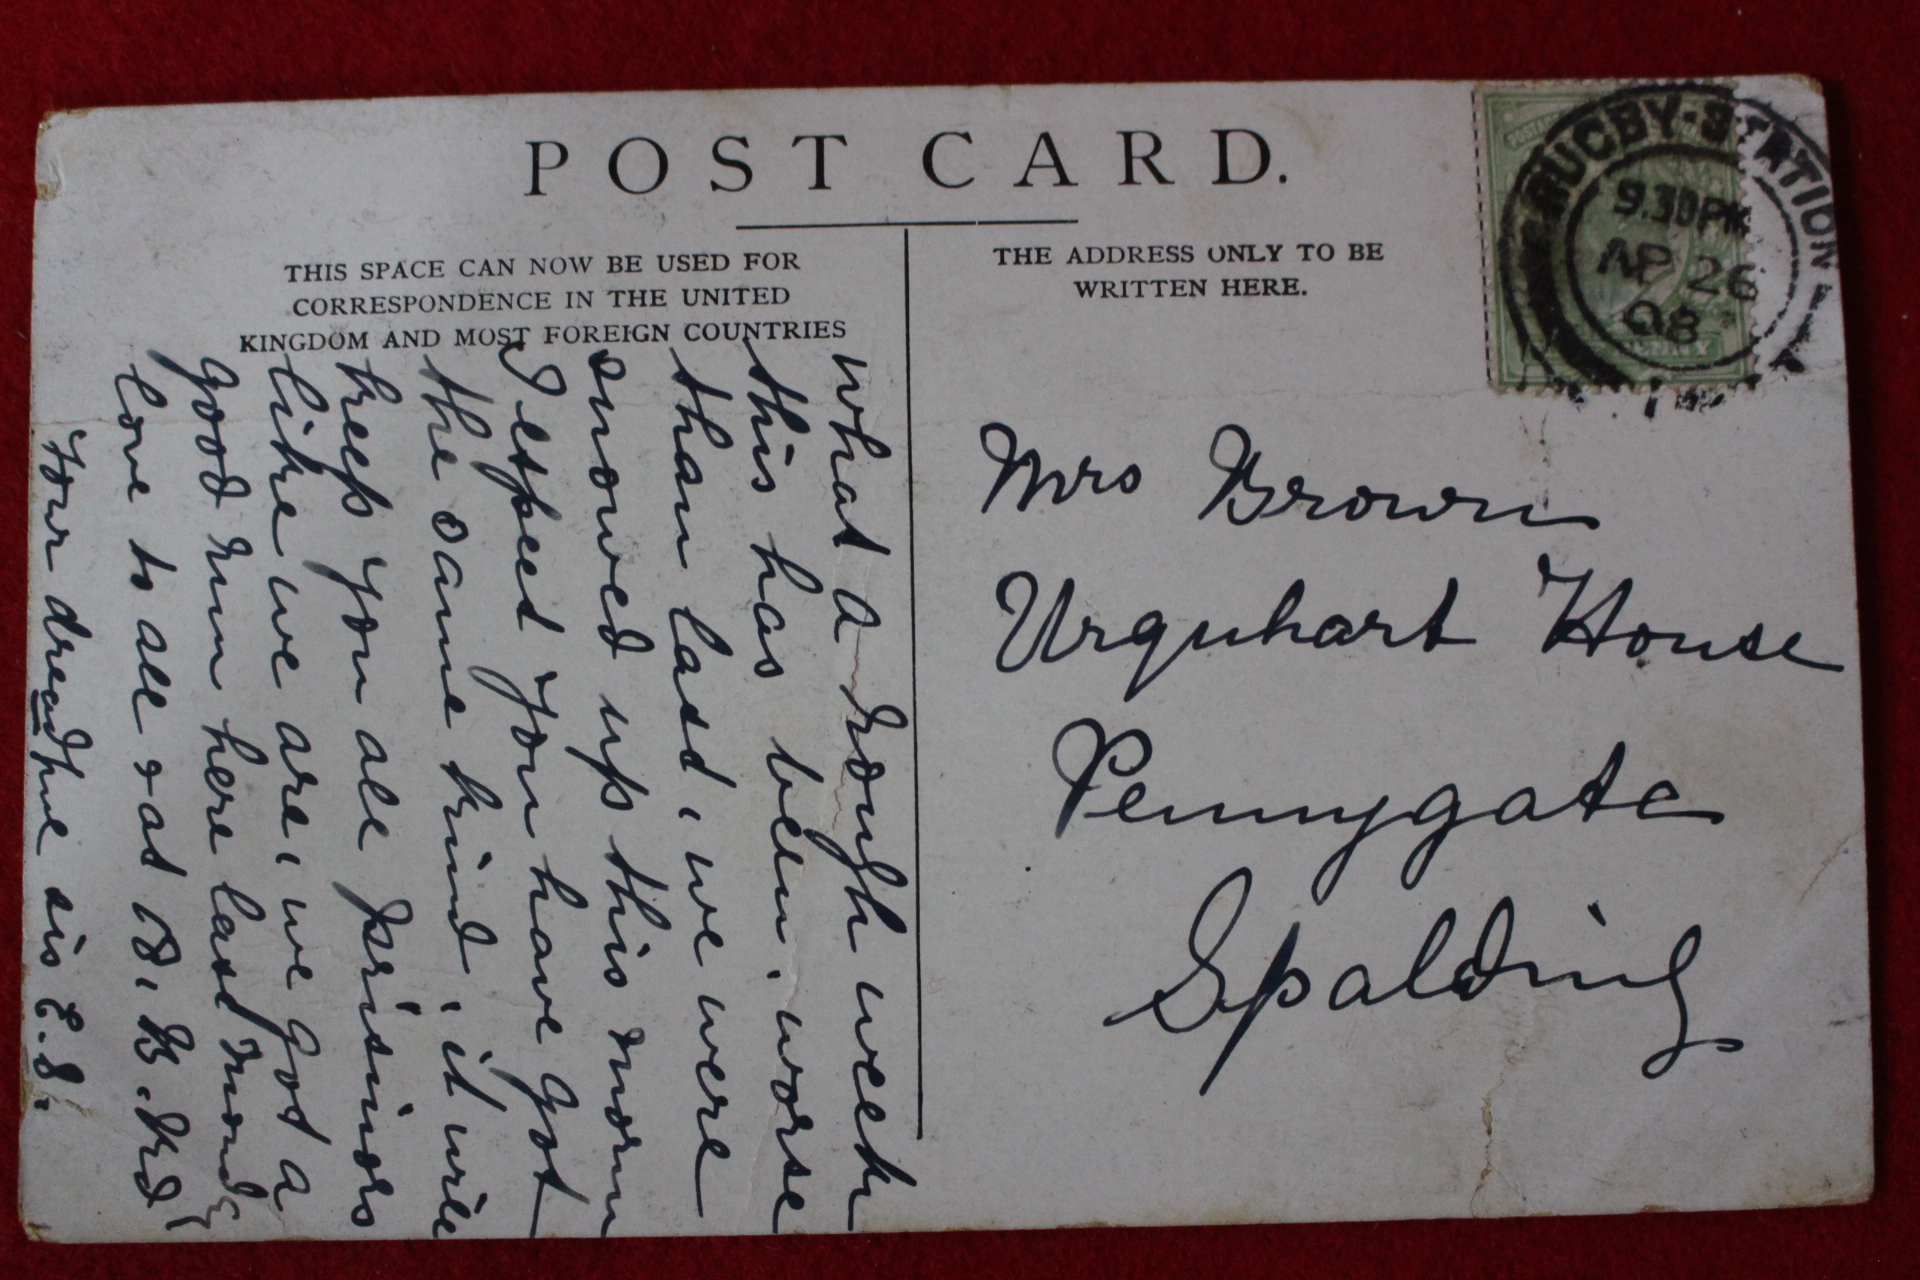 POST CARD.
THIS SPACE CAN NOW BE USED FOR
CORRESPONDENCE IN THE UNITED
KINGDOM AND MOST FOREIGN COUNTRIES
THE ADDRESS ONLY TO BE
WRITTEN HERE.
RUGBY·STATION
9.30PM
AP 26
08
What a rough week
this has been. worse
than last, we were
snowed up this morn
I expect you have got
the same kind, it will
keep you all prisinors
like we are, we got a
good num here last mond
love to all & at 18. B. Rd
Your dreadful sis E.S.
Mrs Brown
Urquhart House
Pennygate
Spalding